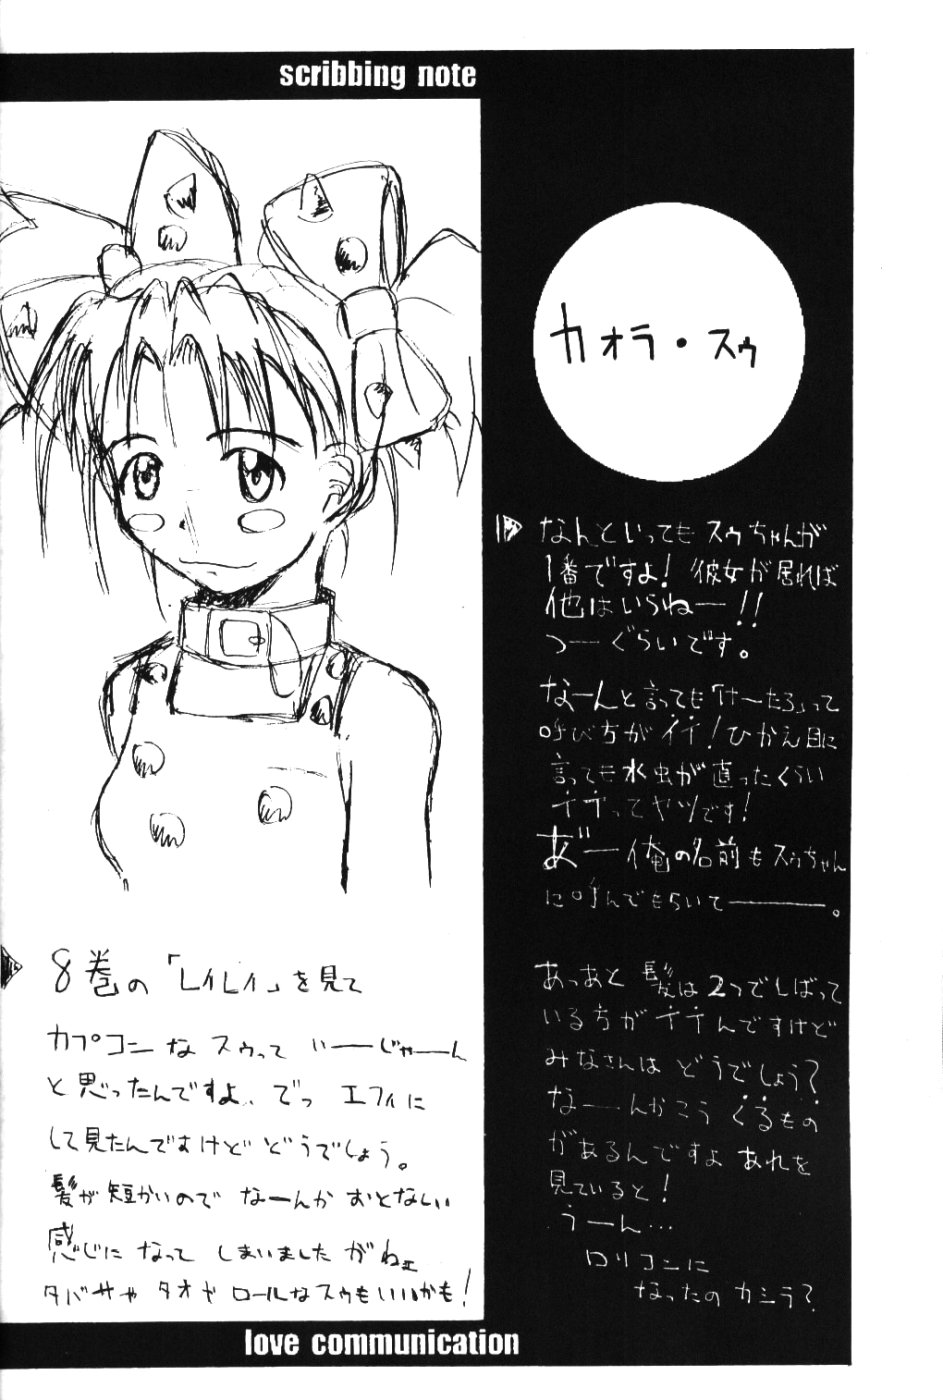 scribbing note
カオラ・スゥ
なんといってもスゥちゃんが
1番ですよ!彼女が居れば
他はいらねー!!
つーぐらいです。
なーんと言っても「けーたろ」って
呼び方がイイ!ひかえ目に
言っても水虫が直ったくらい
イイってヤツです!
あ゛ー俺の名前もスゥちゃん
に呼んでもらいてー。
あっあと髪は2つでしばって
いる方がイイんですけど
みなさんはどうでしょう?
なーんかこうくるもの
があるんですよあれを
見ていると!
うーん…
ロリコンに
なったのカシラ?
8巻の「レイレイ」を見て
カプコンなスゥって いーじゃーん
と思ったんですよ、でっ エフィに
して見たんですけどどうでしょう。
髪が短かいので なーんか おとなしい
感じに なって しまいました がねェ
タバサや タオや ロールなスゥもいいかも!
love communication